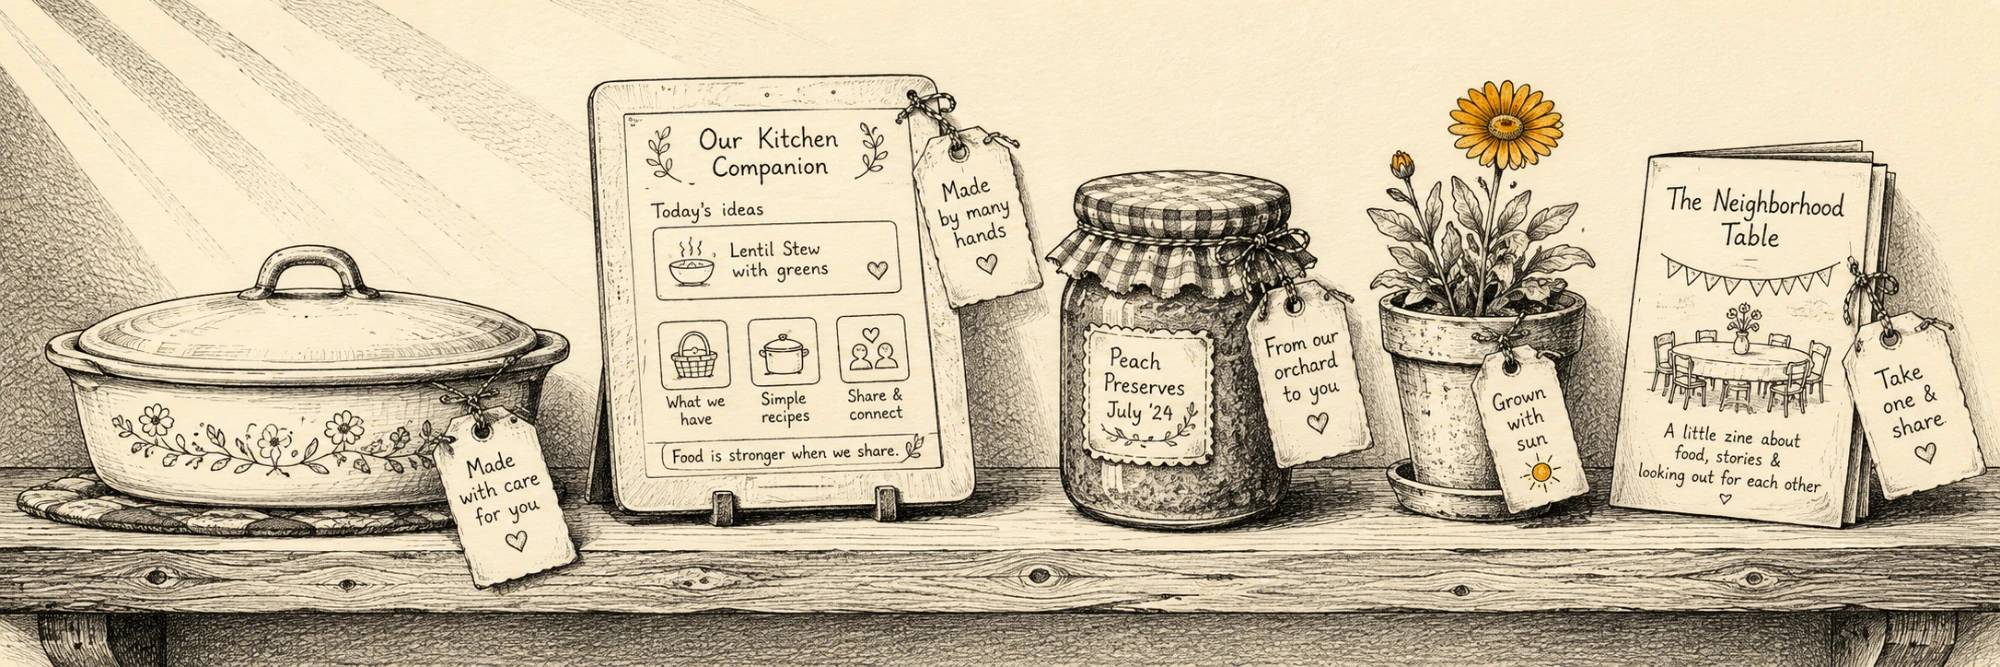 Made
with care
for you
Our Kitchen
Companion
Today's ideas
Lentil Stew
with greens
What we
have
Simple
recipes
Share &
connect
Food is stronger when we share.
Made
by many
hands
Peach
Preserves
July '24
From our
orchard
to you
Grown
with
sun
The Neighborhood
Table
A little zine about
food, stories &
looking out for each other
Take
one &
share